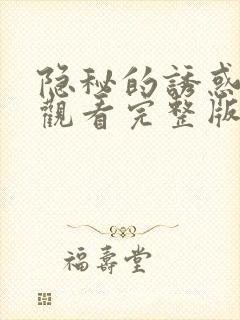 隐秘的誘惑
觀看完整版
福壽堂